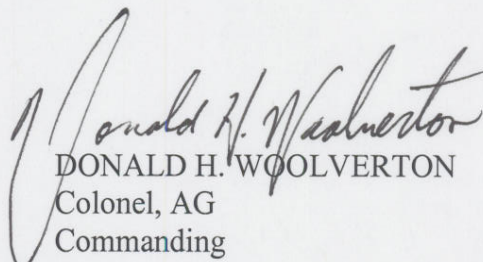 Donald H. Woolverton
DONALD H. WOOLVERTON
Colonel, AG
Commanding